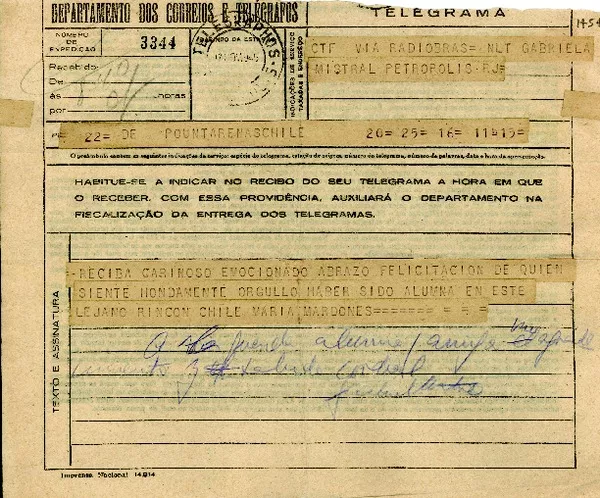 DEPARTAMENTO DOS CORREIOS E TELÉGRAFOS
TELEGRAMA
1454
NÚMERO DE EXPEDIÇÃO
3344
Recebido:
De
às horas
por
INDICAÇÕES DE SERVIÇO TAXADAS E ENDEREÇO
CTF VIA RADIOBRAS= NLT GABRIELA
MISTRAL PETROPOLIS RJ=
22= DE POUNTARENASCHILE 20= 25= 16= 11=15=
O preâmbulo contém as seguintes indicações de serviço: espécie do telegrama, estação de origem, número do telegrama, número de palavras, data e hora da apresentação.
HABITUE-SE A INDICAR NO RECIBO DO SEU TELEGRAMA A HORA EM QUE
O RECEBER. COM ESSA PROVIDÊNCIA, AUXILIARÁ O DEPARTAMENTO NA
FISCALIZAÇÃO DA ENTREGA DOS TELEGRAMAS.
TEXTO E ASSINATURA
=RECIBA CARINOSO EMOCIONADO ABRAZO FELICITACION DE QUIEN
SIENTE HONDAMENTE ORGULLO HABER SIDO ALUMNA EN ESTE
LEJANO RINCON CHILE MARIA MARDONES======= = = =
A la alumna amiga
y cordial
Imprensa Nacional 14.014